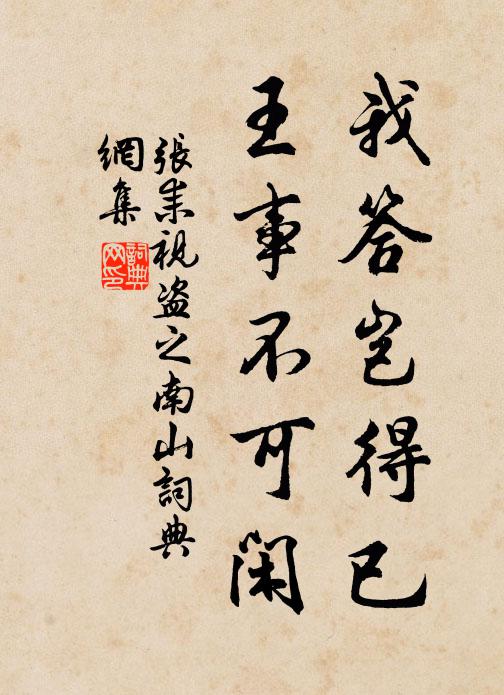 我答豈得已
王事不可閑
張耒視盗之南山詞典
網集
詞典
网印